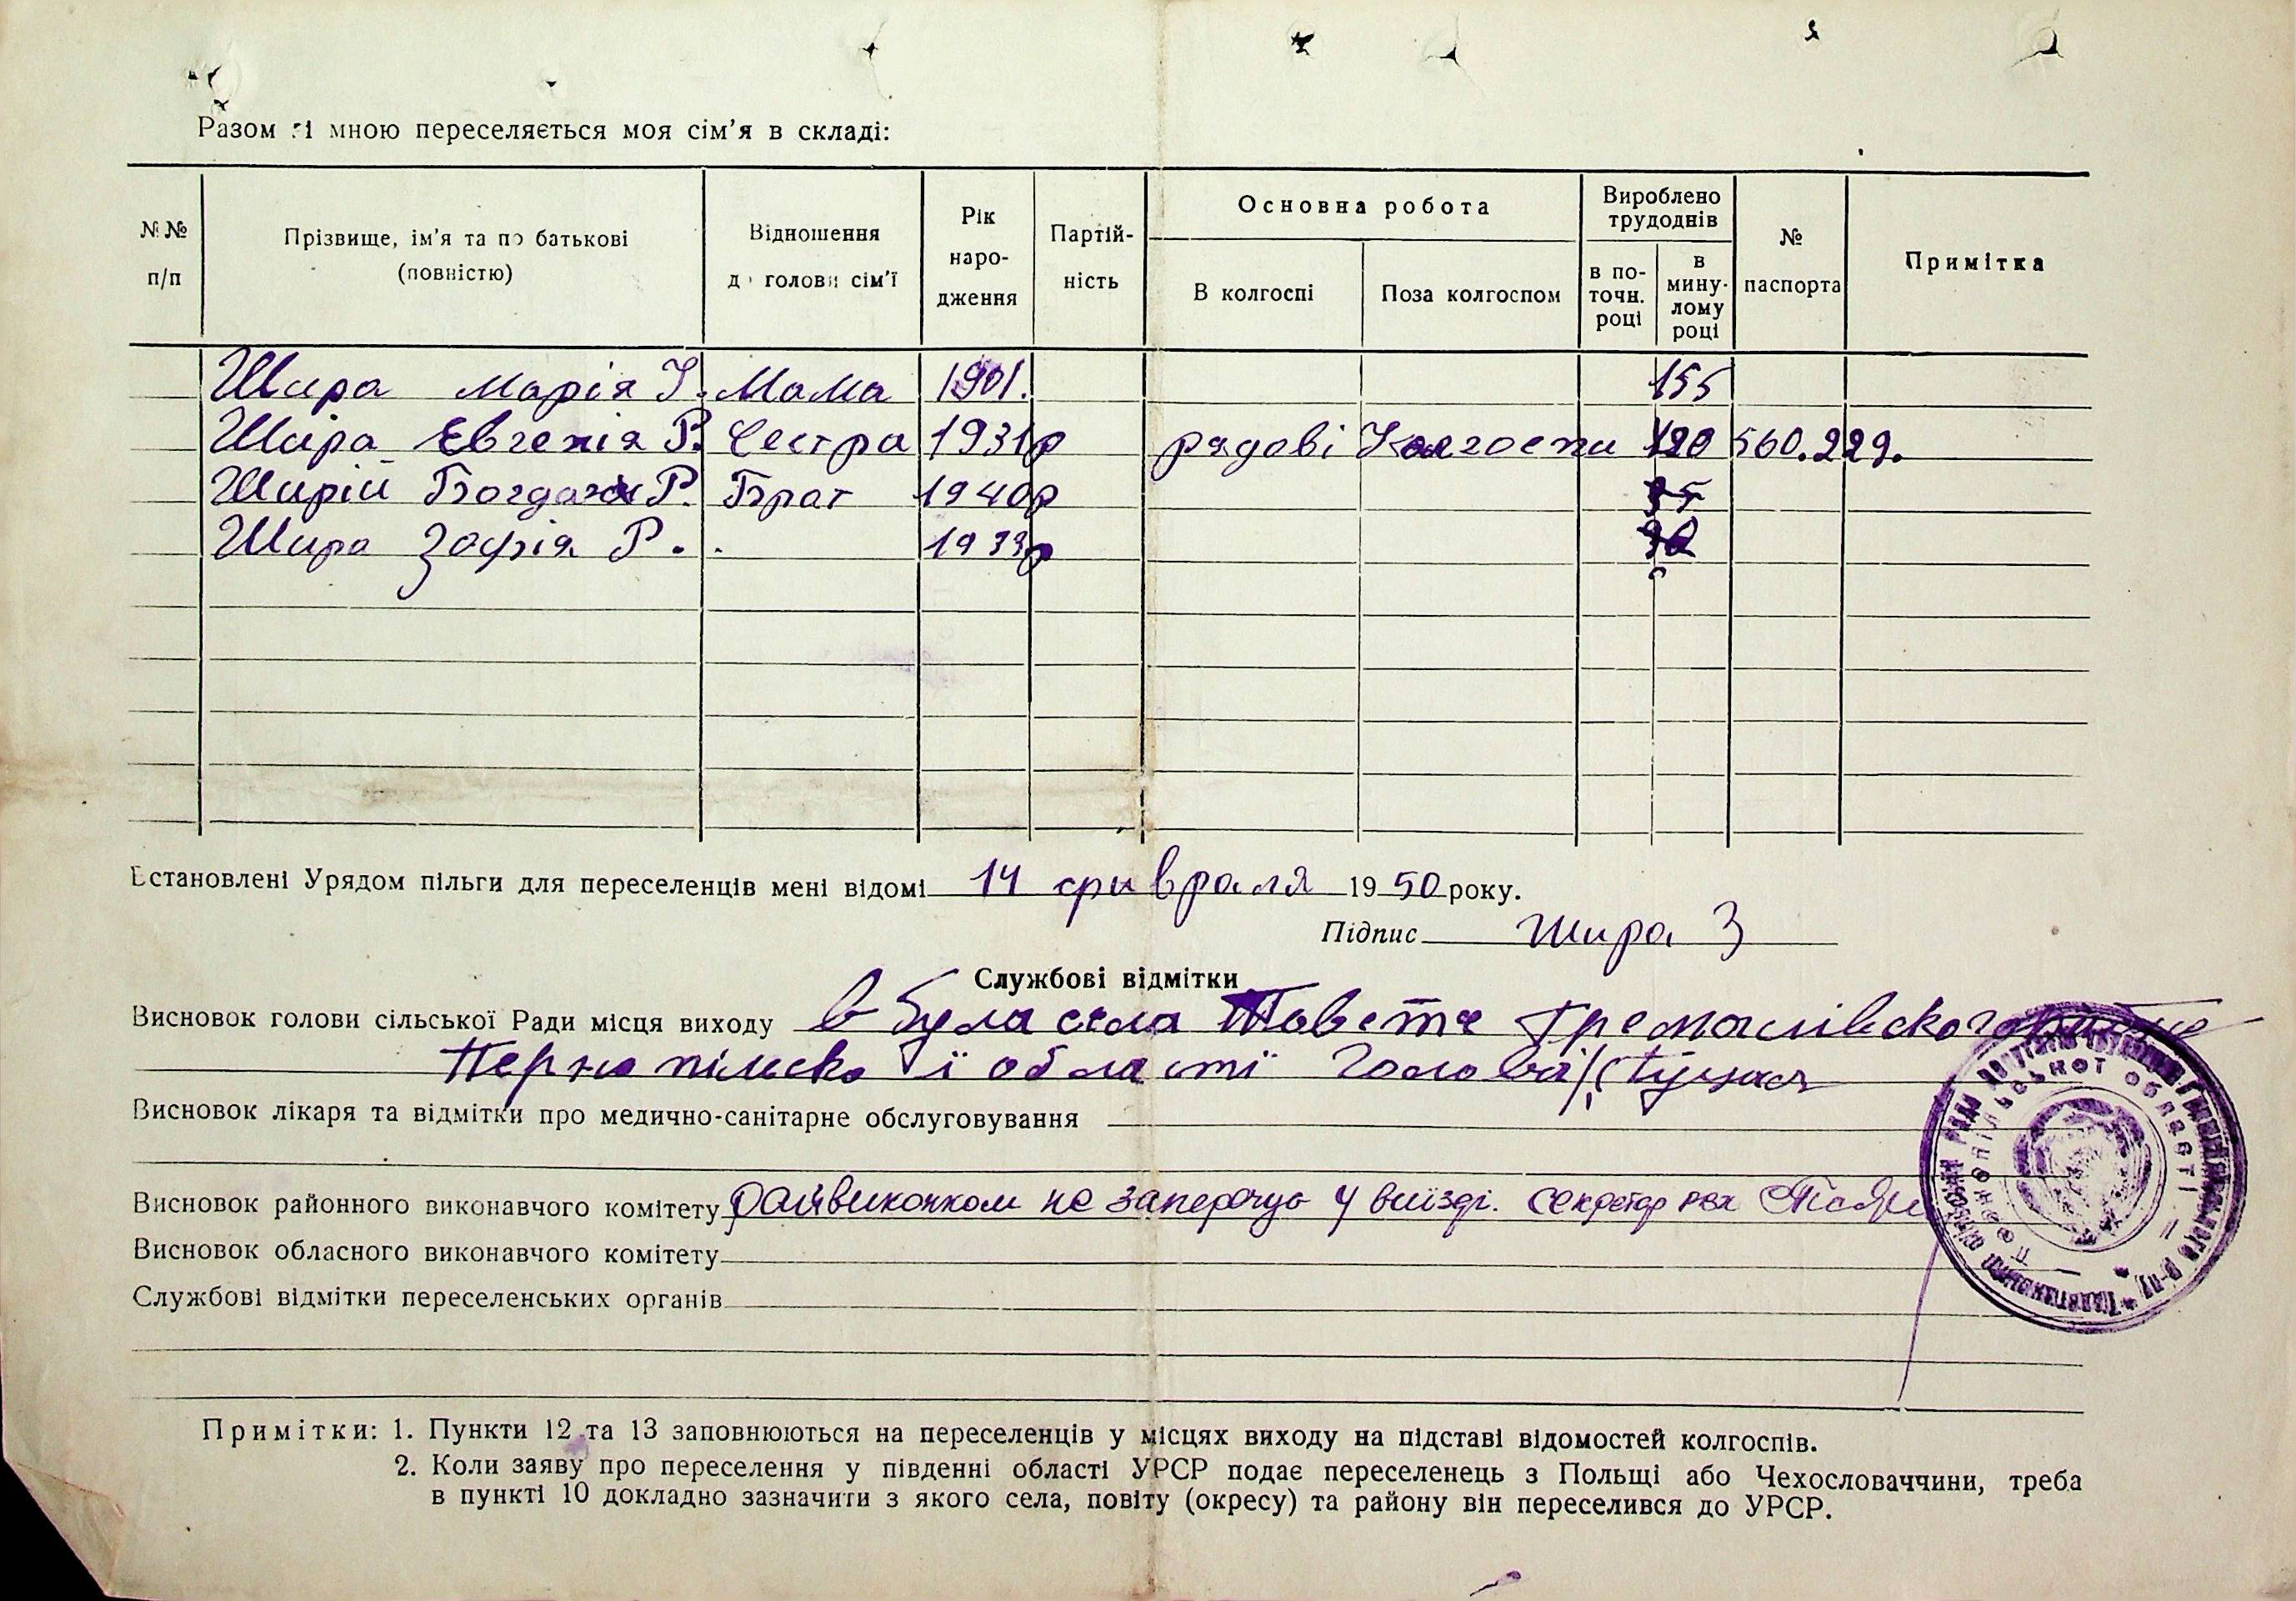 Разом зі мною переселяється моя сім'я в складі:
№№ п/п
Прізвище, ім'я та по батькові (повністю)
Відношення до голови сім'ї
Рік народження
Партійність
Основна робота
В колгоспі
Поза колгоспом
Вироблено трудоднів
в поточн. році
в минулому році
№ паспорта
Примітка
Шира Марія І. Мама 1901. 155
Шира Євгенія Р. Сестра 1931р рядові Колгоспи 120 560.229.
Ширій Богдан Р. Брат 1940р
Шира Зофія Р. . 1933р
Встановлені Урядом пільги для переселенців мені відомі 14 фивраля 1950 року.
Підпис Шира З
Службові відмітки
Висновок голови сільської Ради місця виходу в була села Гремаслівского
Тернопільскої області Голова
Висновок лікаря та відмітки про медично-санітарне обслуговування
Висновок районного виконавчого комітету райвиконком не заперечує у виїзді. секретар рвк
Висновок обласного виконавчого комітету
Службові відмітки переселенських органів
Примітки: 1. Пункти 12 та 13 заповнюються на переселенців у місцях виходу на підставі відомостей колгоспів.
2. Коли заяву про переселення у південні області УРСР подає переселенець з Польщі або Чехословаччини, треба
в пункті 10 докладно зазначити з якого села, повіту (окресу) та району він переселився до УРСР.